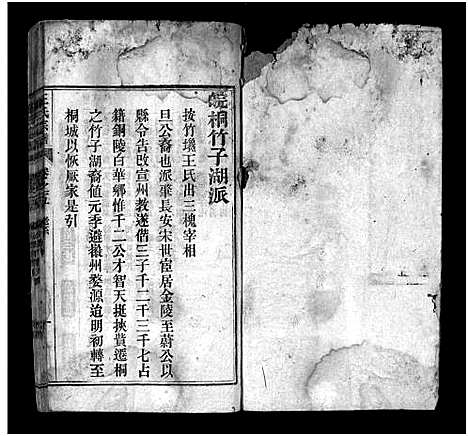 皖桐竹子湖派
按竹墩王氏出三槐宰相
旦公裔也派衍長安宋世宦居金陵至蔚公以
縣令告改宣州教遂偕三子千二千三千七占
籍銅陵白華鄉惟千二公才智天挺挾貲遷桐
之竹子湖裔值元季避徽州婺源迨明初轉至
桐城以恢厥家是引
王氏宗
卷之五